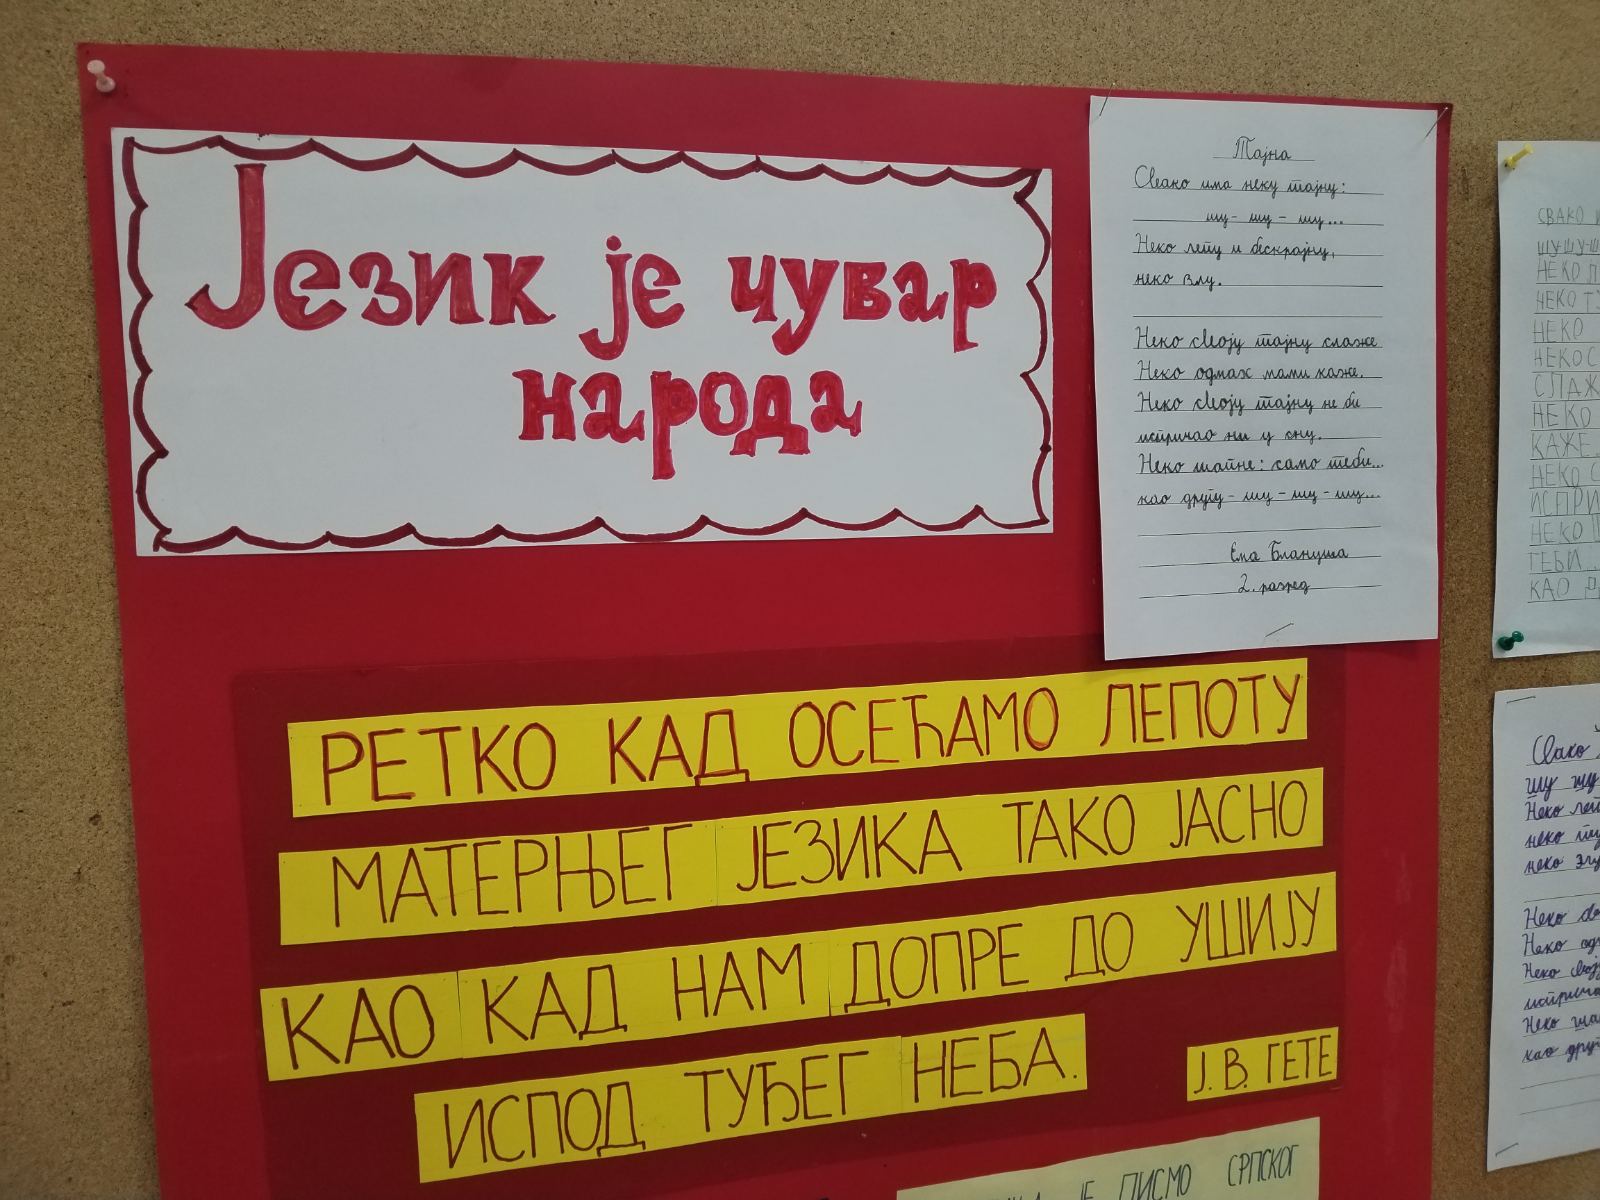 Језик је чувар
народа
Тајна
Свако има неку тајну:
шу - шу - шу...
Неко лепу и бескрајну,
неко злу.
Неко своју тајну слаже
Неко одмах мами каже.
Неко своју тајну не би
испричао ни у сну.
Неко шапне: само теби...
као другу - шу - шу - шу...
Ема Блануша
2. разред
РЕТКО КАД ОСЕЋАМО ЛЕПОТУ
МАТЕРЊЕГ ЈЕЗИКА ТАКО ЈАСНО
КАО КАД НАМ ДОПРЕ ДО УШИЈУ
ИСПОД ТУЂЕГ НЕБА.
Ј. В. ГЕТЕ
ЈЕ ПИСМО СРПСКОГ
СВАКО
ШУ-ШУ-Ш
НЕКО
НЕКО
НЕКО
НЕКО С
СЛАЖ
НЕКО
КАЖЕ.
НЕКО С
ИСПРИ
НЕКО
ТЕБИ
КАО
Свако
шу шу
Неко
неко
неко
Неко
Неко
Неко
Неко
као